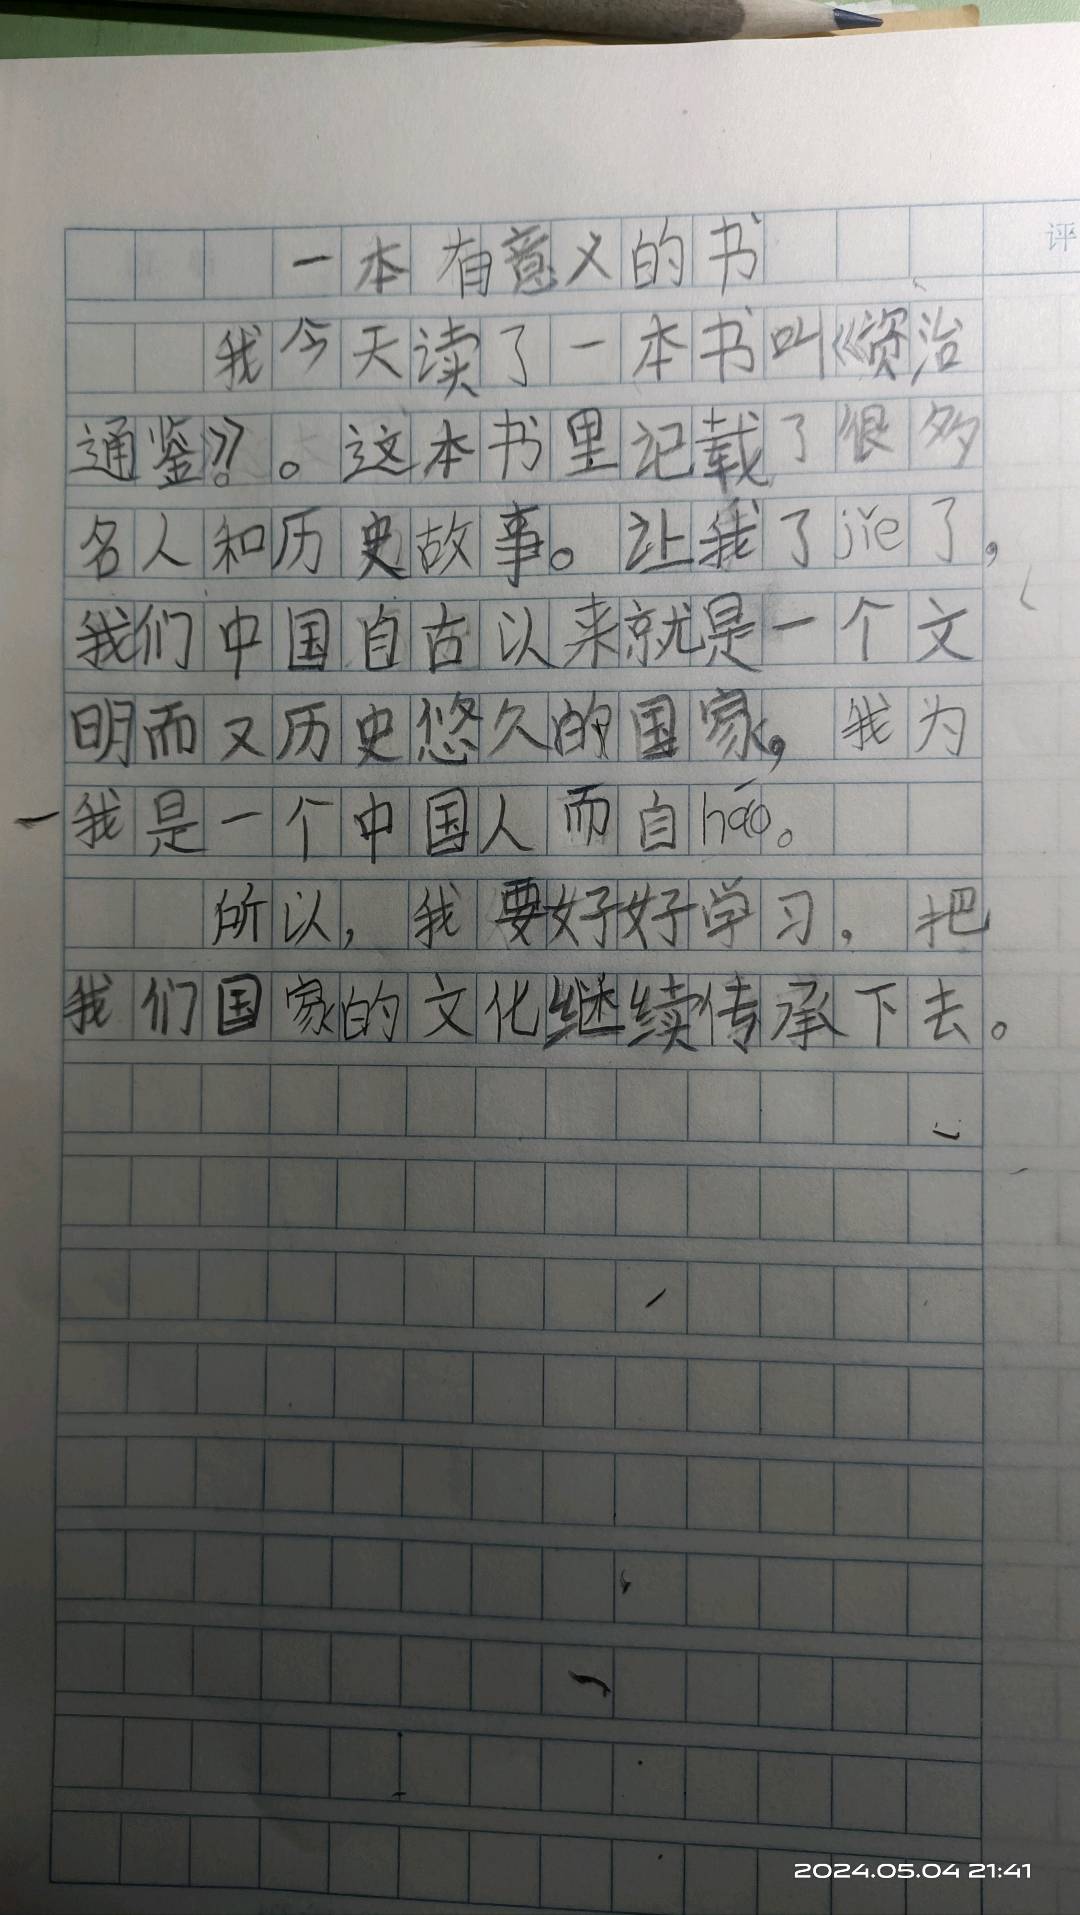 一本有意义的书
评
我今天读了一本书叫《资治
通鉴》。这本书里记载了很多
名人和历史故事。让我了jiě了，
我们中国自古以来就是一个文
明而又历史悠久的国家，我为
我是一个中国人而自háo。
所以，我要好好学习，把
我们国家的文化继续传承下去。
2024.05.04 21:41